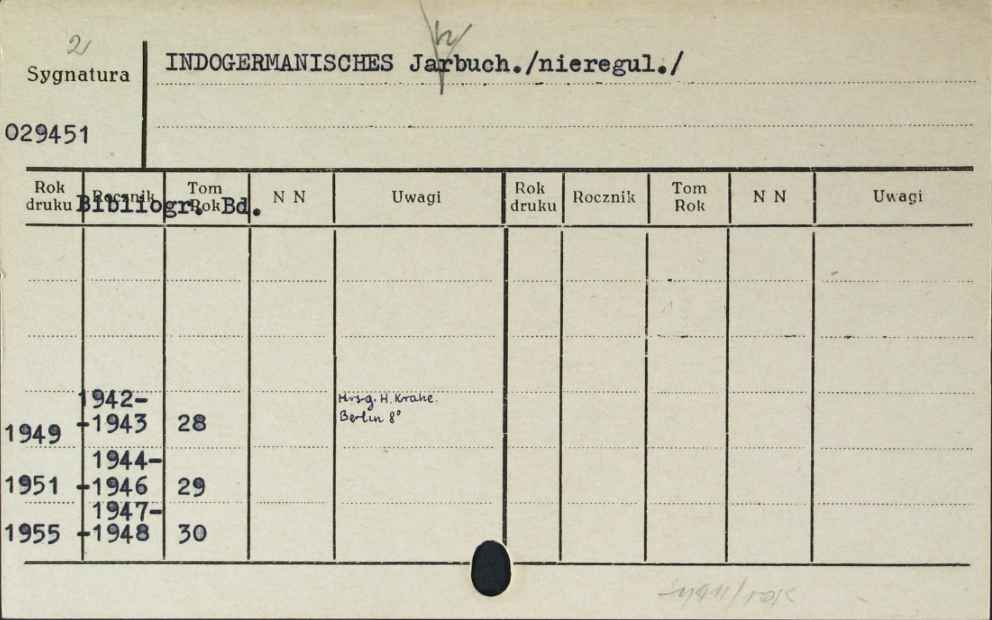 2
h
Sygnatura INDOGERMANISCHES Jarbuch./nieregul./
029451
Rok druku Rocznik Tom Rok N N Uwagi Rok druku Rocznik Tom Rok N N Uwagi
Bibliogr. Bd.
1942- Hrsg. H. Krahe.
1949 -1943 28 Berlin 8°
1944-
1951 -1946 29
1947-
1955 -1948 30